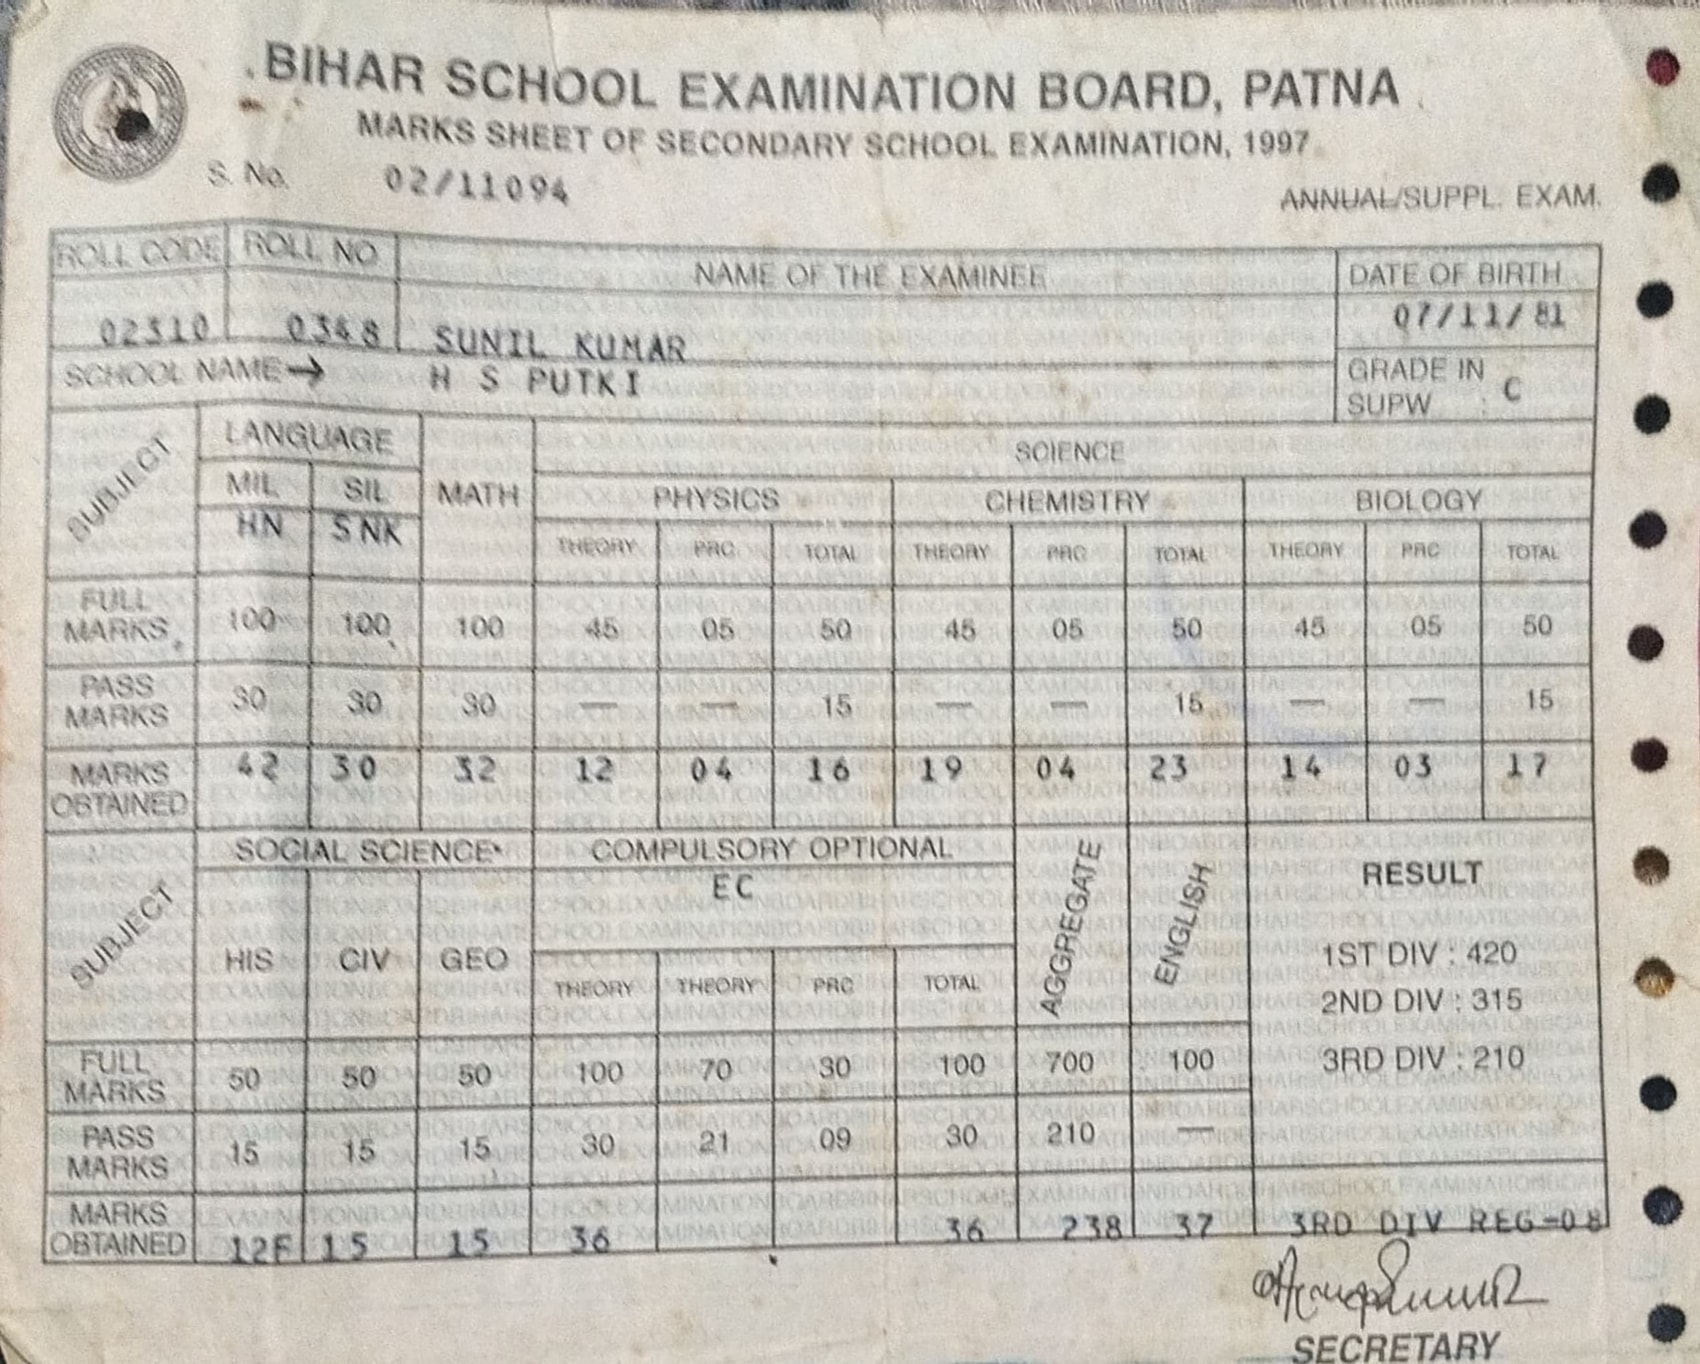 BIHAR SCHOOL EXAMINATION BOARD, PATNA
MARKS SHEET OF SECONDARY SCHOOL EXAMINATION, 1997
S. No. 02/11094
ANNUAL/SUPPL. EXAM.
ROLL CODE ROLL NO NAME OF THE EXAMINEE DATE OF BIRTH
02310 0348 SUNIL KUMAR 07/11/81
SCHOOL NAME→ H S PUTKI GRADE IN SUPW C
SUBJECT LANGUAGE MATH SCIENCE
MIL SIL PHYSICS CHEMISTRY BIOLOGY
HN SNK THEORY PRC TOTAL THEORY PRC TOTAL THEORY PRC TOTAL
FULL MARKS 100 100 100 45 05 50 45 05 50 45 05 50
PASS MARKS 30 30 30 — — 15 — — 15 — — 15
MARKS OBTAINED 42 30 32 12 04 16 19 04 23 14 03 17
SUBJECT SOCIAL SCIENCE COMPULSORY OPTIONAL AGGREGATE ENGLISH RESULT
EC
HIS CIV GEO THEORY THEORY PRC TOTAL
1ST DIV : 420
2ND DIV : 315
3RD DIV : 210
FULL MARKS 50 50 50 100 70 30 100 700 100
PASS MARKS 15 15 15 30 21 09 30 210 —
MARKS OBTAINED 12F 15 15 36 36 238 37 3RD DIV REG-08
SECRETARY